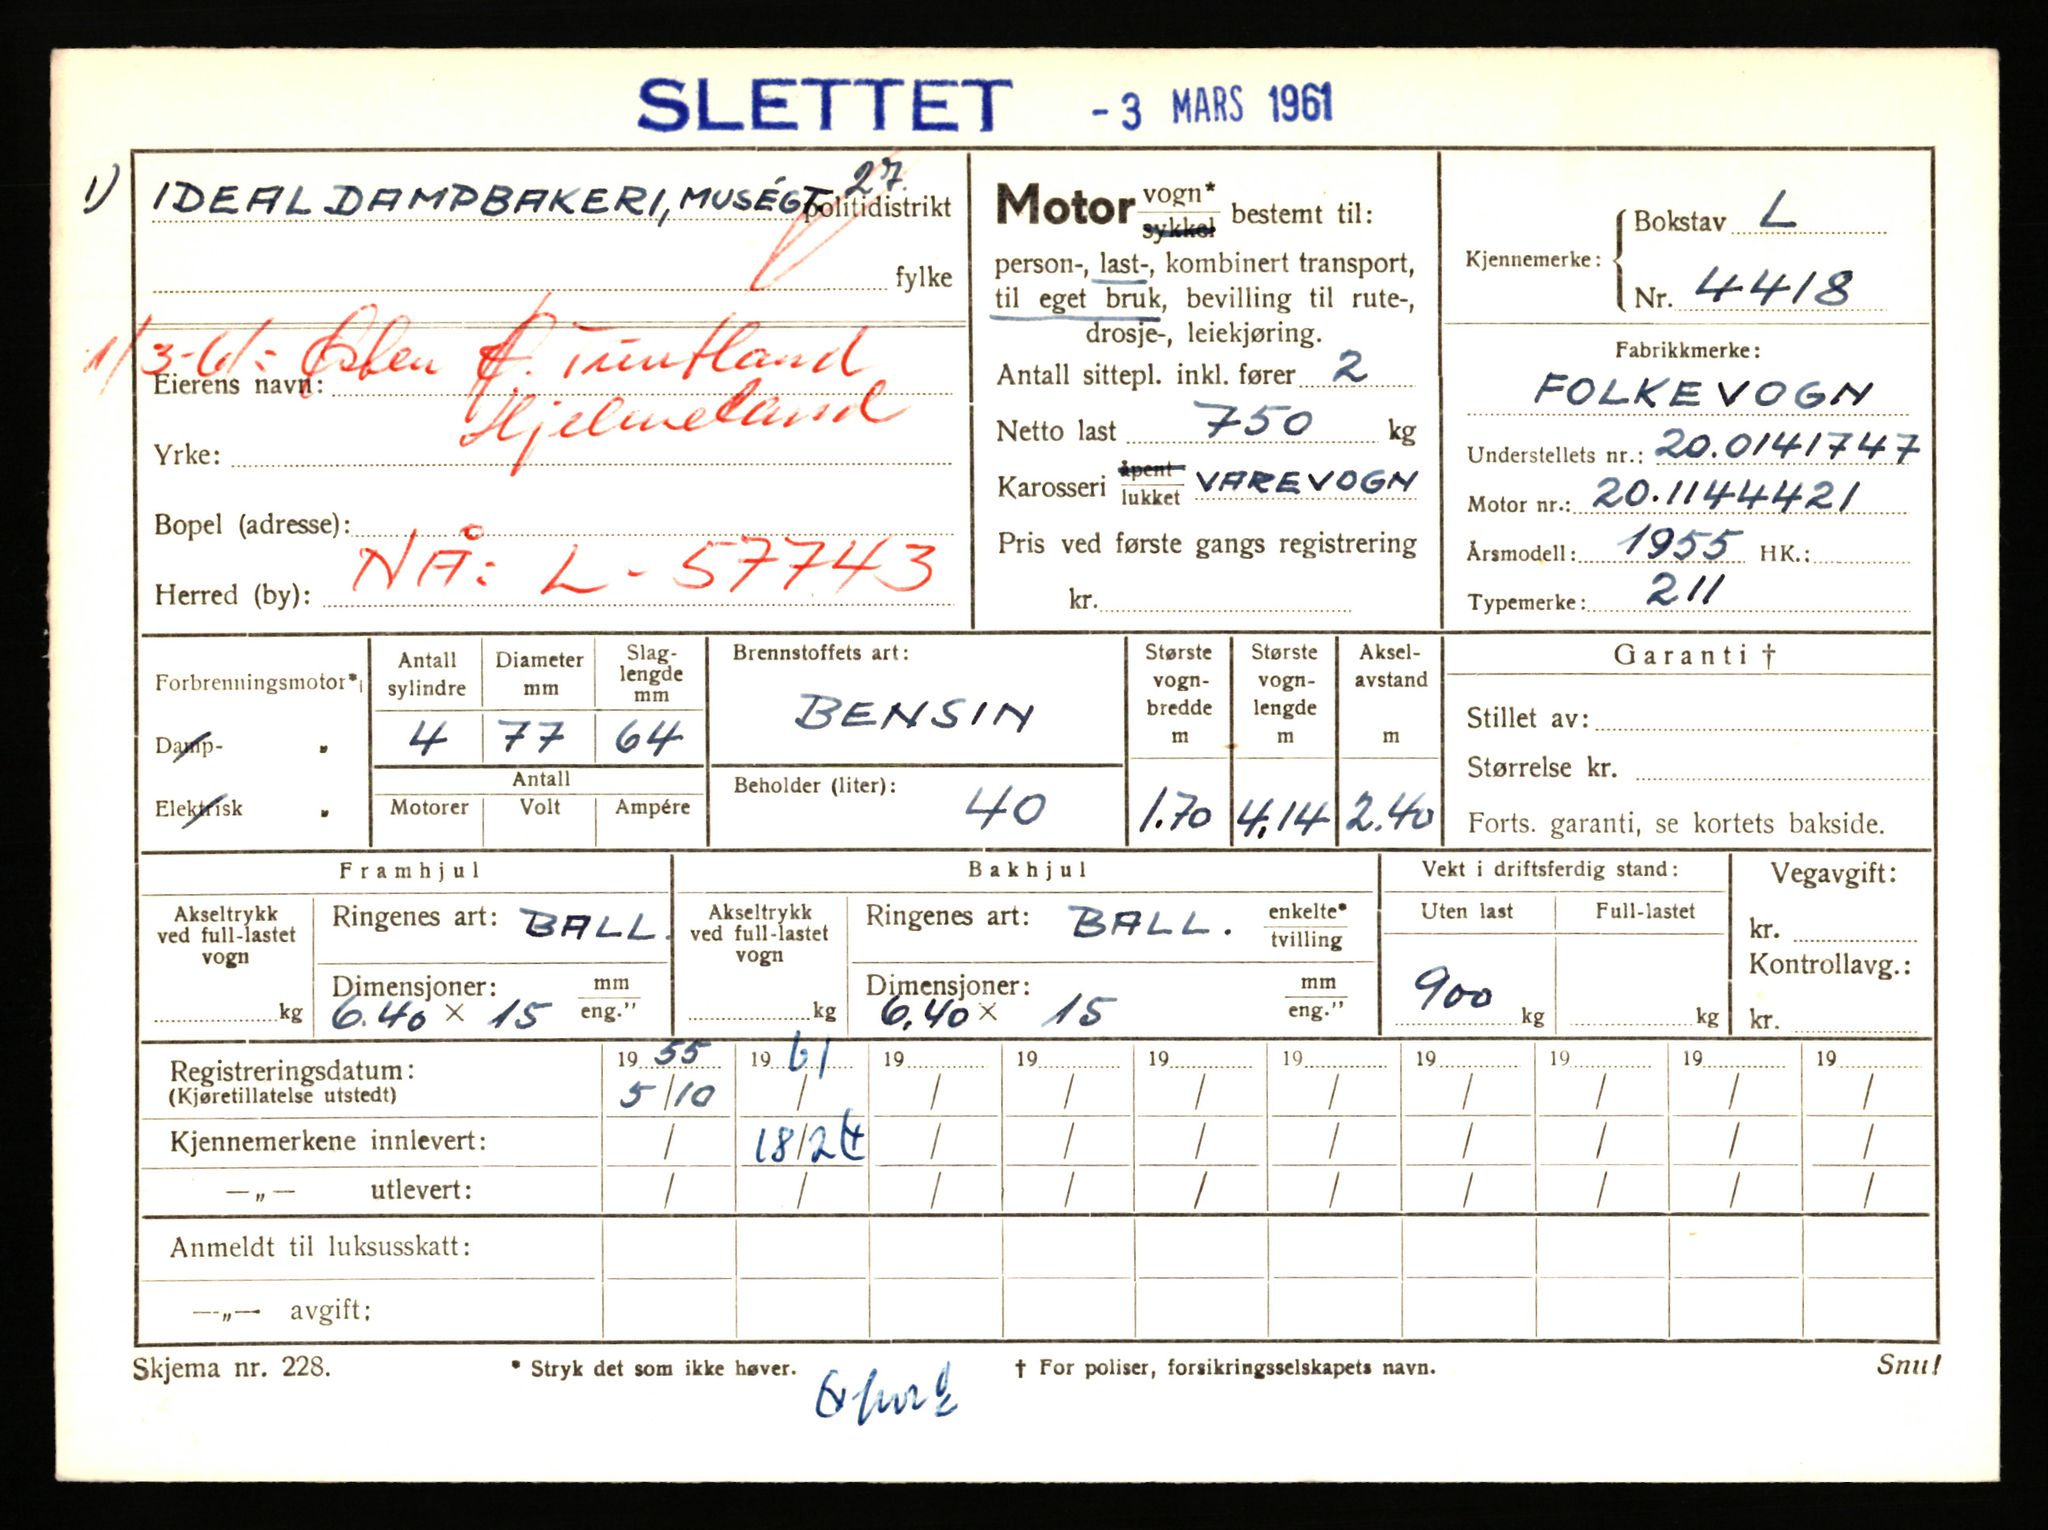 SLETTET - 3 MARS 1961
1) IDEAL DAMPBAKERI, MUSÉGT. 27. politidistrikt
fylke
1/3-61: Esben Tuntland
Eierens navn:
Hjelmeland
Yrke:
Bopel (adresse):
NÅ: L - 57743
Herred (by):
Motor vogn* / sykkel bestemt til:
person-, last-, kombinert transport,
til eget bruk, bevilling til rute-,
drosje-, leiekjøring.
Antall sittepl. inkl. fører 2
Netto last 750 kg
Karosseri åpent / lukket VAREVOGN
Pris ved første gangs registrering
kr.
Kjennemerke: { Bokstav L
Nr. 4418
Fabrikkmerke:
FOLKEVOGN
Understellets nr.: 20.0141747
Motor nr.: 20.1144421
Årsmodell: 1955 HK.:
Typemerke: 211
Forbrenningsmotor*
Damp- „
Elektrisk „
Antall sylindre
4
Diameter mm
77
Slag-
lengde
mm
64
Antall
Motorer Volt Ampére
Brennstoffets art:
BENSIN
Beholder (liter):
40
Største
vogn-
bredde
m
1.70
Største
vogn-
lengde
m
4.14
Aksel-
avstand
m
2.40
Garanti †
Stillet av:
Størrelse kr.
Forts. garanti, se kortets bakside.
Framhjul
Akseltrykk
ved full-lastet
vogn
kg
Ringenes art: BALL.
Dimensjoner: mm
6.40 × 15 eng.”
Bakhjul
Akseltrykk
ved full-lastet
vogn
kg
Ringenes art: BALL. enkelte* / tvilling
Dimensjoner: mm
6.40 × 15 eng.”
Vekt i driftsferdig stand:
Uten last Full-lastet
900 kg kg
Vegavgift:
kr.
Kontrollavg.:
kr.
Registreringsdatum: 19 55 19 61 19 19 19 19 19 19 19 19
(Kjøretillatelse utstedt) 5/10 / / / / / / / / /
Kjennemerkene innlevert: / 18/2 / / / / / / / /
—„— utlevert: / / / / / / / / / /
Anmeldt til luksusskatt:
—„— avgift:
Skjema nr. 228. * Stryk det som ikke høver. † For poliser, forsikringsselskapets navn. Snu!